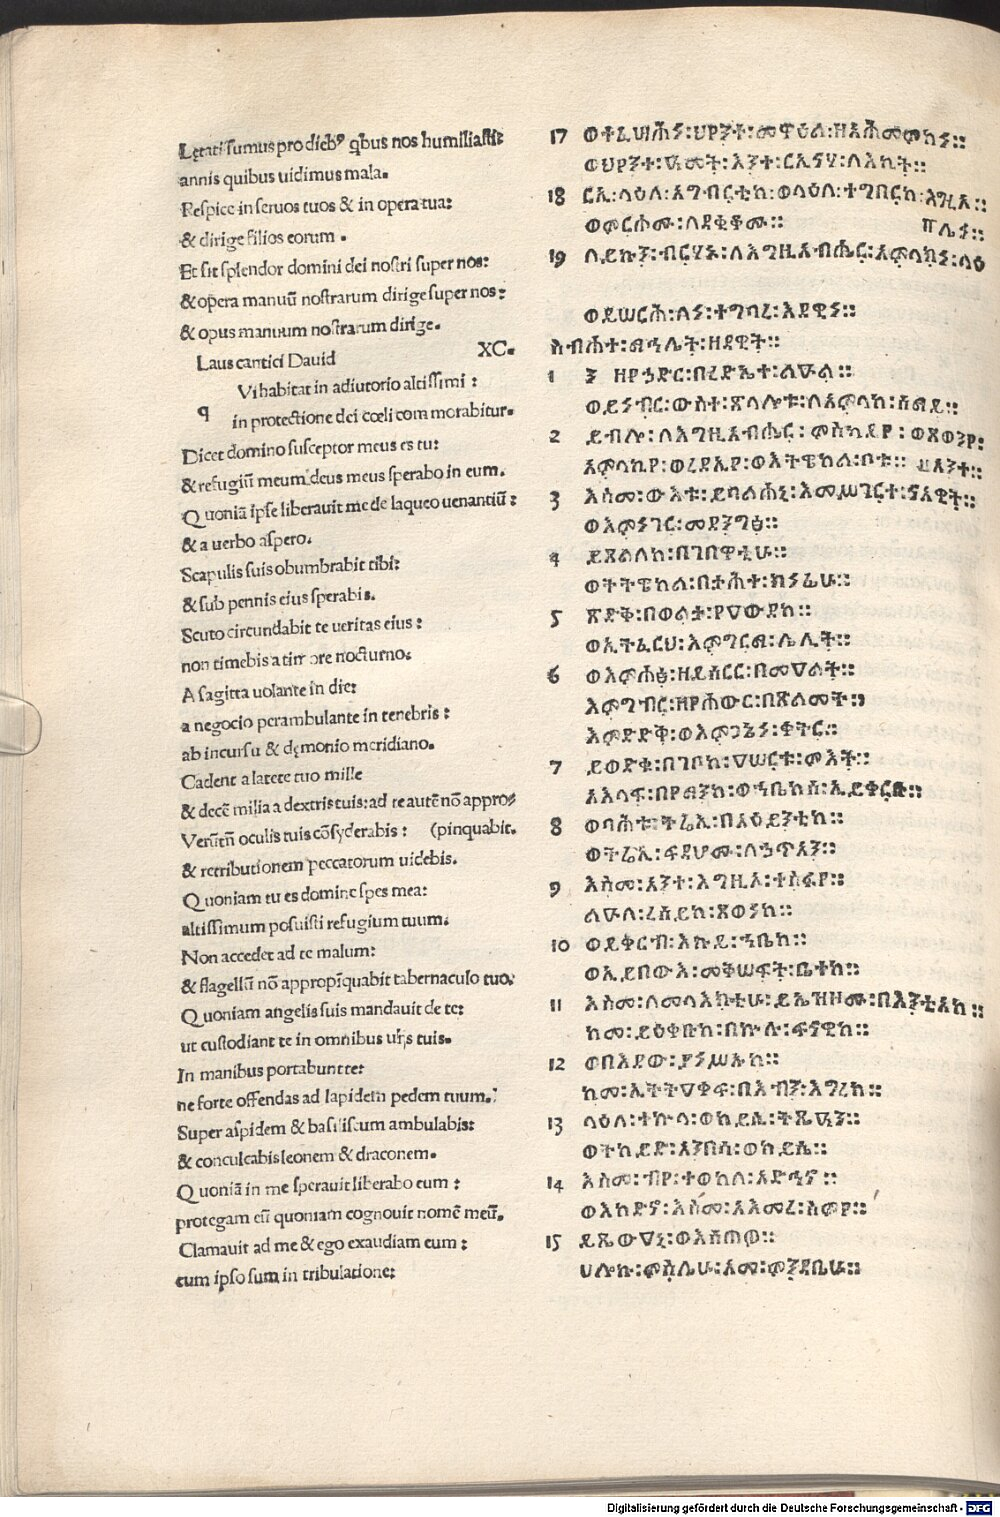 Lętati ſumus pro dieb⁹ qbus nos humiliaſti:
annis quibus uidimus mala.
Reſpice in ſeruos tuos & in opera tua:
& dirige filios eorum.
Et ſit ſplendor domini dei noſtri ſuper nos:
& opera manuū noſtrarum dirige ſuper nos:
& opus manuum noſtrarum dirige.
Laus cantici Dauid XC.
q Vi habitat in adiutorio altiſſimi :
in protectione dei cœli commorabitur.
Dicet domino ſuſceptor meus es tu:
& refugiū meum deus meus ſperabo in eum.
Quoniā ipſe liberauit me de laqueo uenantiū :
& a uerbo aſpero.
Scapulis ſuis obumbrabit tibi:
& ſub pennis eius ſperabis.
Scuto circundabit te ueritas eius :
non timebis a timore nocturno.
A ſagitta uolante in die:
a negocio perambulante in tenebris :
ab incurſu & dęmonio meridiano.
Cadent a latere tuo mille
& decē milia a dextris tuis: ad te autē nō appro⸗
Verūtn̄ oculis tuis cōſyderabis : (pinquabit.
& retributionem peccatorum uidebis.
Quoniam tu es domine ſpes mea:
altiſſimum poſuiſti refugium tuum.
Non accedet ad te malum:
& flagellū nō appropīquabit tabernaculo tuo.
Quoniam angelis ſuis mandauit de te:
ut cuſtodiant te in omnibus uijs tuis.
In manibus portabunt te:
ne forte offendas ad lapidem pedem tuum.
Super aſpidem & baſiliſcum ambulabis:
& conculcabis leonem & draconem.
Quoniā in me ſperauit liberabo eum :
protegam eū quoniam cognouit nomē meū.
Clamauit ad me & ego exaudiam eum :
cum ipſo ſum in tribulatione:
17 ወተፈሣሕነ፡ ህየንተ፡ መዋዕል፡ ዘአሕመምከነ፡፡
ወህየንተ፡ ዓመት፡ እንተ፡ ርኢነሃ፡ ለእኪት፡፡
18 ርኢ፡ ላዕለ፡ አግብርቲከ፡ ወላዕለ፡ ተግባርከ፡ እግዚአ፡፡
ወምርሖሙ፡ ለደቂቆሙ፡፡ ፐሌና፡፡
19 ለይኩን፡ ብርሃኑ፡ ለእግዚአብሔር፡ አምላክነ፡ ላዕ
ወይሠርሕ፡ ለነ፡ ተግባረ፡ እደዊነ፡፡
ስብሐተ፡ ማኅሌት፡ ዘዳዊት፡፡
1 ፺ ዘየኀድር፡ በረድኤተ፡ ልዑል፡፡
ወይነብር፡ ውስተ፡ ጽላሎቱ፡ ለአምላከ፡ ሰማይ፡፡
2 ይብሎ፡ ለእግዚአብሔር፡ ምስካይየ፡ ወጸወንየ፡
አምላኪየ፡ ወረዳእየ፡ ወእትዌከል፡ ቦቱ፡፡
3 እስመ፡ ውእቱ፡ ይባልሐኒ፡ እመሥገርተ፡ ነዓዊት፡፡
ወእምነገር፡ መደንግፅ፡፡
4 ይጼልለከ፡ በገበዋቲሁ፡፡
ወትትዌከል፡ በታሕተ፡ ክነፊሁ፡፡
5 ጽድቅ፡ በወልታ፡ የዐውደከ፡፡
ወኢትፈርህ፡ እምግርማ፡ ሌሊት፡፡
6 ወእምሐፅ፡ ዘይሰርር፡ በመዐልት፡፡
እምግብር፡ ዘየሐውር፡ በጽልመት፡፡
እምድድቅ፡ ወእምጋኔነ፡ ቀትር፡፡
7 ይወድቁ፡ በገቦከ፡ ዐሠርቱ፡ ምእት፡፡
አእላፍ፡ በየማንከ፡ ወኀቤከሰ፡ ኢይቀርቡ፡፡
8 ወባሕቱ፡ ትሬኢ፡ በአዕይንቲከ፡፡
ወትሬኢ፡ ፍዳሆሙ፡ ለኃጥአን፡፡
9 እስመ፡ አንተ፡ እግዚእ፡ ተስፋየ፡፡
ልዑለ፡ ረሰይከ፡ ጸወነከ፡፡
10 ወይቀርብ፡ እኩይ፡ ኀቤከ፡፡
ወኢይበውእ፡ መቅሠፍት፡ ቤተከ፡፡
11 እስመ፡ ለመላእክቲሁ፡ ይኤዝዞሙ፡ በእንቲአከ፡፡
ከመ፡ ይዕቀቡከ፡ በኵሉ፡ ፍናዊከ፡፡
12 ወበእደው፡ ያነሥኡከ፡፡
ከመ፡ ኢትትዐቀፍ፡ በእብን፡ እግረከ፡፡
13 ላዕለ፡ ተኵላ፡ ወከይሲ፡ ትጼዓን፡፡
ወትከይድ፡ አንበሳ፡ ወከይሴ፡፡
14 እስመ፡ ብየ፡ ተወከለ፡ አድኅኖ፡፡
ወእከድኖ፡ እስመ፡ አእመረ፡ ስምየ፡፡
15 ይጼውዐኒ፡ ወእሰጠዎ፡፡
ሀሎኩ፡ ምስሌሁ፡ አመ፡ ምንዳቤሁ፡፡
Digitalisierung gefördert durch die Deutsche Forschungsgemeinschaft - DFG